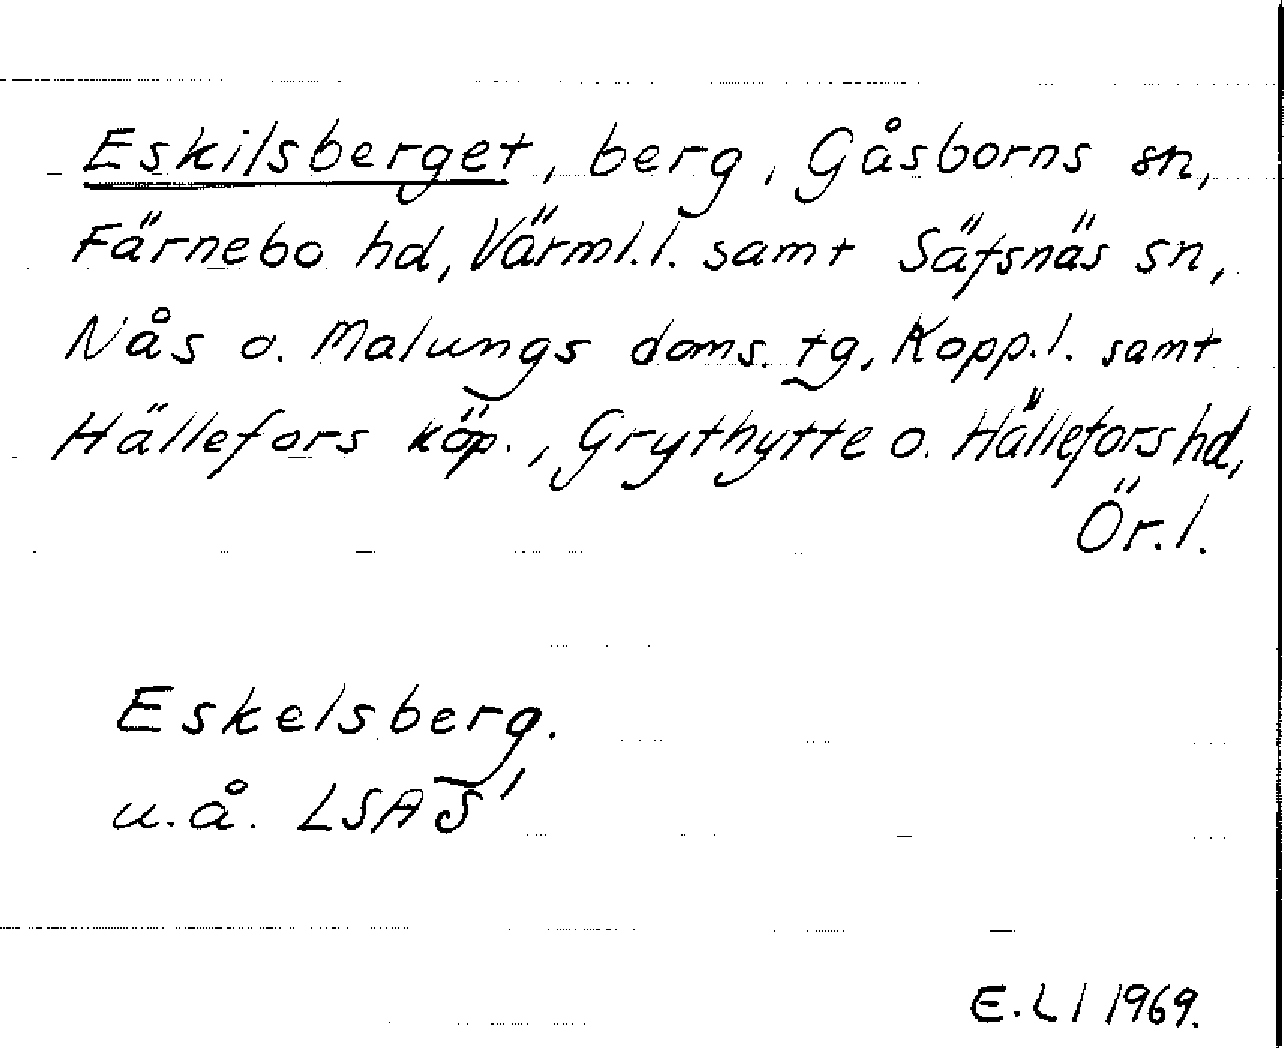 Eskilsberget, berg, Gåsborns sn,
Färnebo hd, Värml.l. samt Säfsnäs sn,
Nås o. Malungs doms. tg, Kopp.l. samt
Hällefors köp., Grythytte o. Hällefors hd,
Ör.l.
Eskelsberg.
u.å. LSA S'
E.LI 1969.